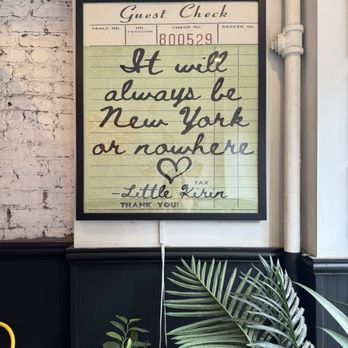 Guest Check
TABLE NO. NO. PERSONS CHECK NO. SERVER NO.
800529
It will
always be
New York
or nowhere
TAX
-Little Kirin
THANK YOU!